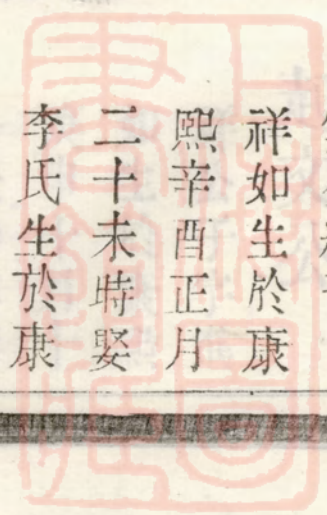 祥如生於康
熙辛酉正月
二十未時娶
李氏生於康